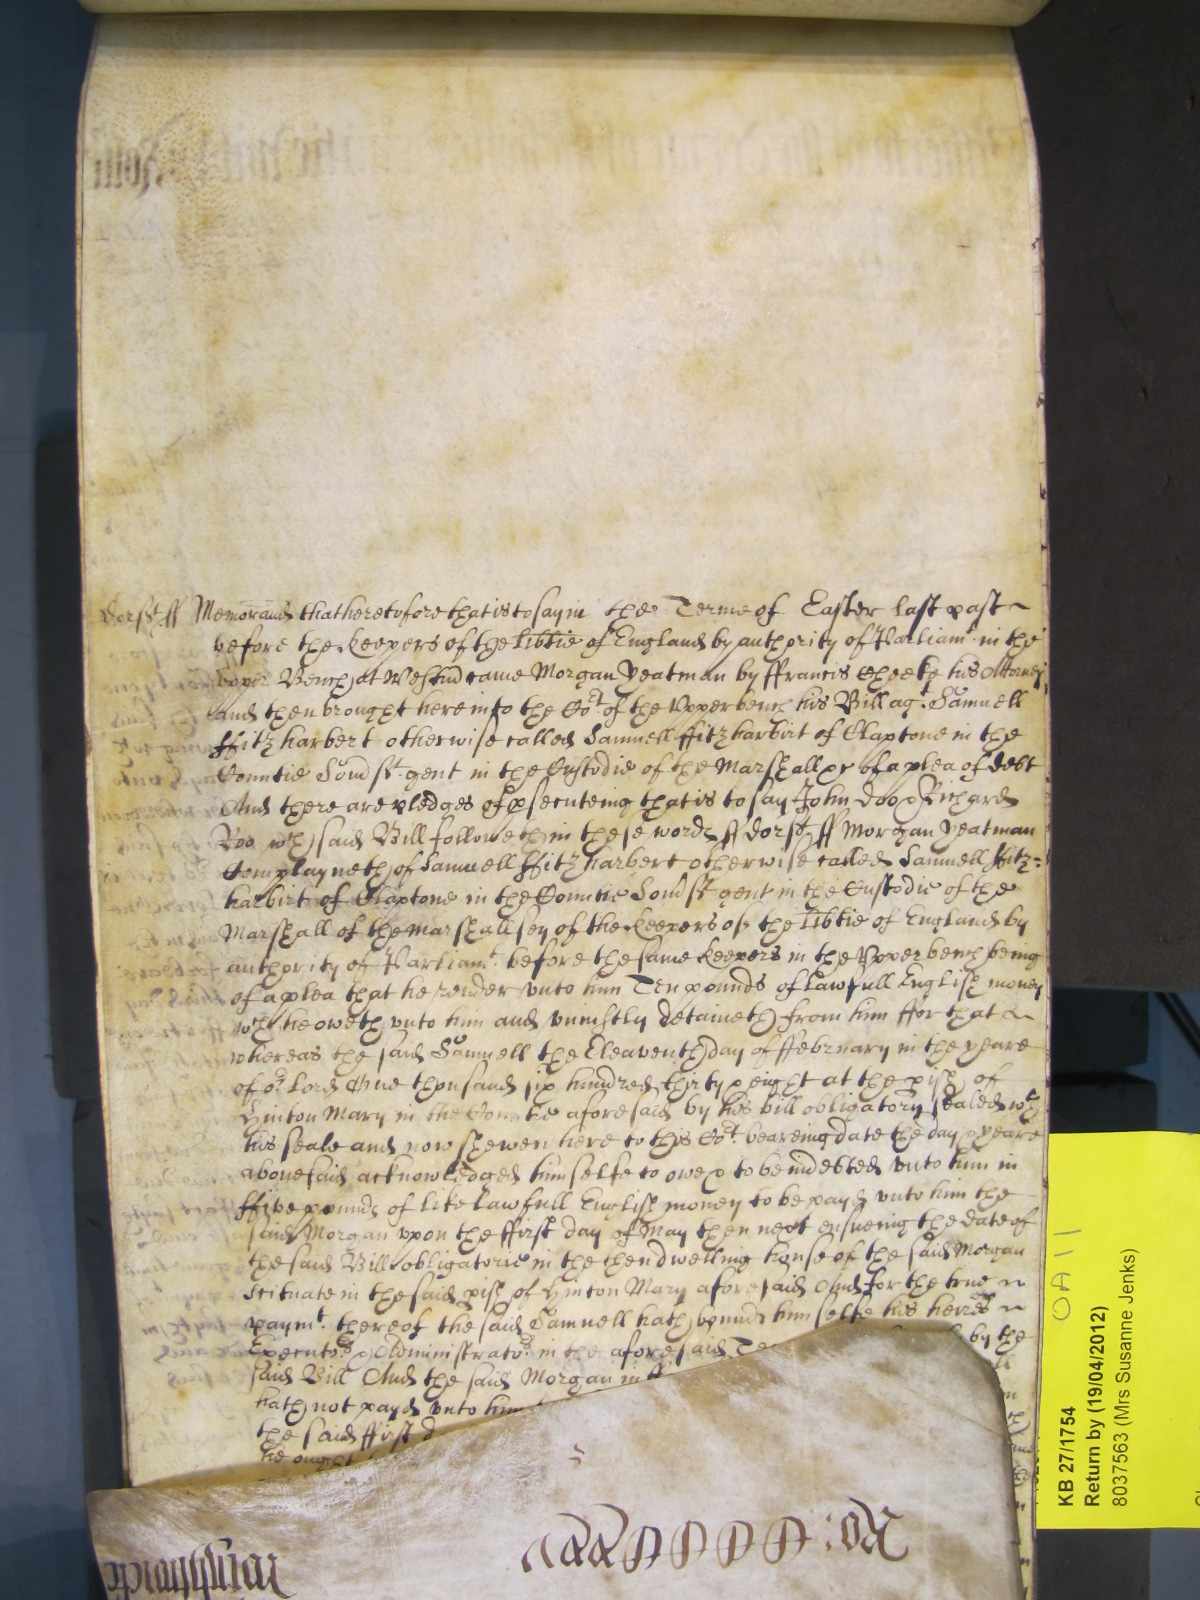 Dorst ff Memorand that heretofore that is to say in the Terme of Easter last past
before the Keepers of the Libtie of England by authority of Parliamt. in the
upper Bench at Westmr came Morgan Yeatman by ffrancis Cheeke his Attorney
and then brought here into the Cort of the Upper bench his Bill agt. Samuell
ffitzharbert otherwise called Samuell ffitzharbirt of Claptone in the
Countie Somst. gent in the Custodie of the Marshall &c of a plea of debt
And there are pledges of psecuteing that is to say John Doo & Richard
Roo wch said Bill followeth in these words ff Dorst ff Morgan Yeatman
Complayneth of Samuell ffitzharbert otherwise called Samuell ffitz=
harbirt of Claptone in the Countie Somst gent in the Custodie of the
Marshall of the Marshallsey of the Keepers of the Libtie of England by
authority of Parliamt. before the same Keepers in the Upper bench being
of a plea that he render unto him Ten pounds of lawfull English money
wch he oweth unto him and uniustly detaineth from him ffor that
whereas the said Samuell the Eleaventh day of ffebruary in the yeare
of or Lord One thousand six hundred thirty & eight at the pish of
Hinton Mary in the Countie aforesaid by his bill obligatory sealed wth
his seale and now shewen here to this Cort. beareing date the day & yeare
abovesaid acknowledged himselfe to owe & to be indebted unto him in
ffive pounds of like lawfull English money to be payd unto him the
said Morgan upon the ffirst day of May then next ensueing the date of
the said Bill obligatorie in the then dwelling house of the said Morgan
scituate in the said pish of Hinton Mary aforesaid And for the true
paymt. thereof the said Samuell hath bound himselfe his heires
Executors & Administrators in the aforesaid by the
said Bill And the said Morgan in
hath not payd unto him
the said ffirst
he ought
Ro:
KB 27/1754
Return by (19/04/2012)
8037563 (Mrs Susanne Jenks)